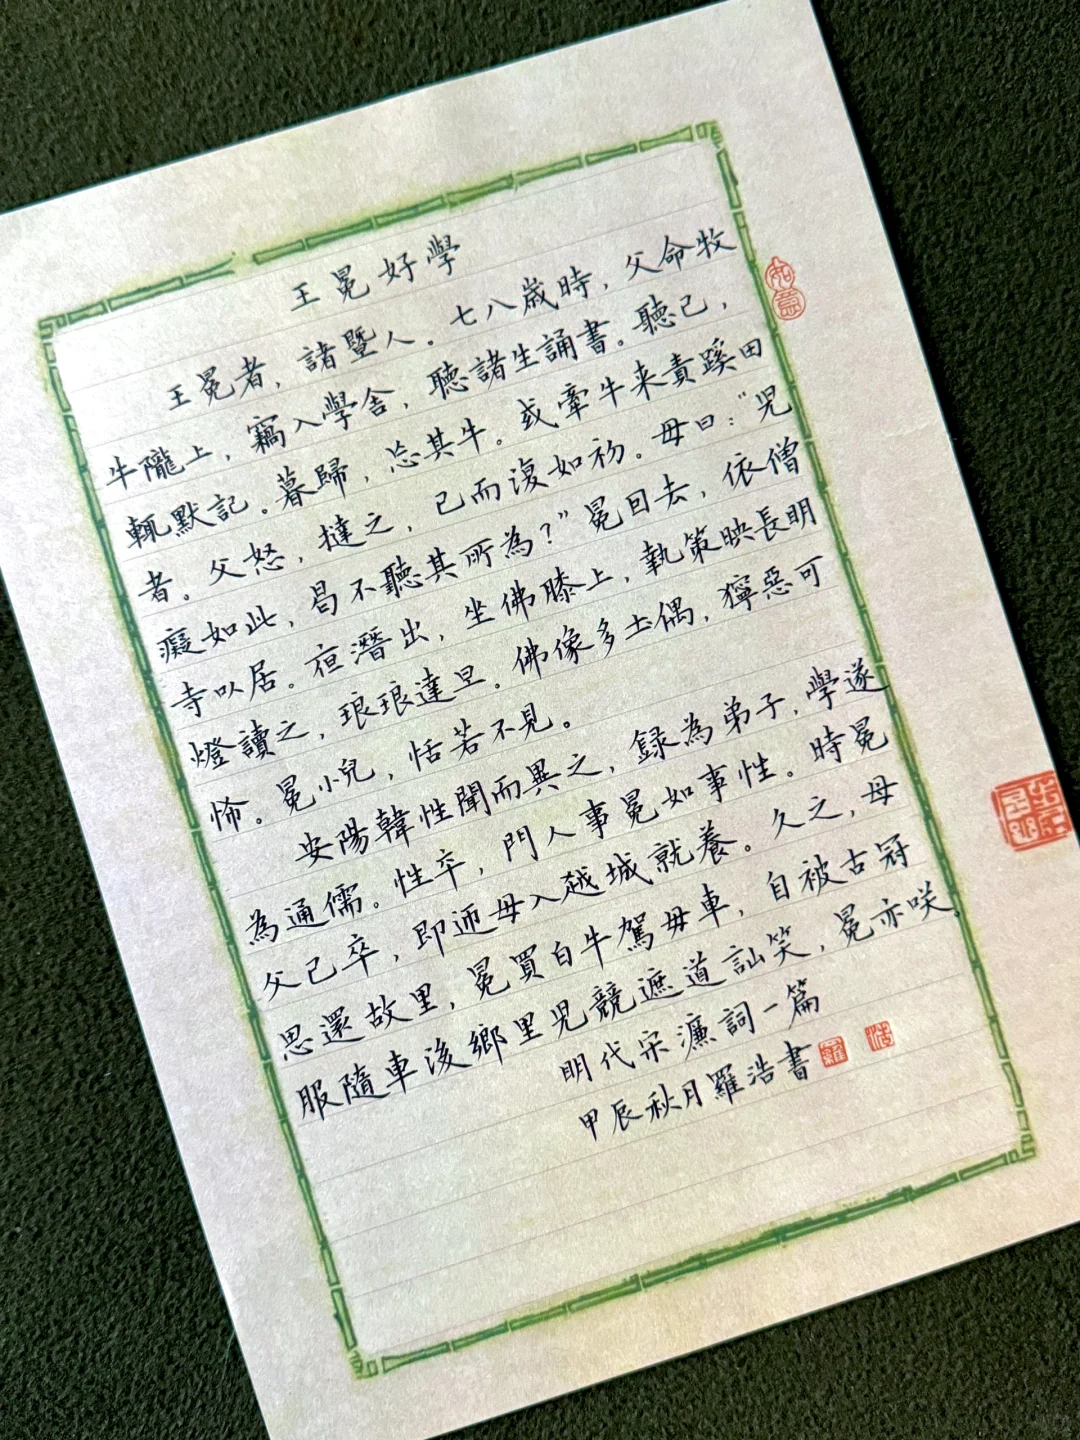 王冕好學
王冕者，諸暨人。七八歲時，父命牧
牛隴上，竊入學舍，聽諸生誦書。聽已，
輒默記。暮歸，忘其牛。或牽牛来責蹊田
者。父怒，撻之，已而復如初。母曰：“兒
癡如此，曷不聽其所為？”冕因去，依僧
寺以居。夜潛出，坐佛膝上，執策映長明
燈讀之，琅琅達旦。佛像多土偶，獰惡可
怖。冕小兒，恬若不見。
安陽韓性聞而異之，錄為弟子，學遂
為通儒。性卒，門人事冕如事性。時冕
父已卒，即迎母入越城就養。久之，母
思還故里，冕買白牛駕母車，自被古冠
服隨車後鄉里兒競遮道訕笑，冕亦咲。
明代宋濂詞一篇
甲辰秋月羅浩書
如意
羅
浩